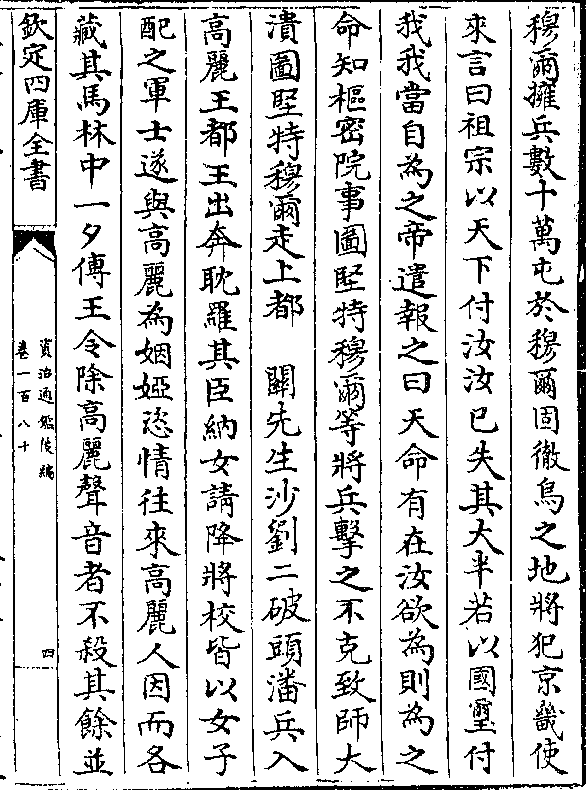 穆爾擁兵數十萬屯於穆爾固徹烏之地將犯京畿使
來言曰祖宗以天下付汝汝已失其大半若以國璽付
我我當自為之帝遣報之曰天命有在汝欲為則為之
命知樞密院事圖堅特穆爾等將兵擊之不克致師大
潰圖堅特穆爾走上都　關先生沙劉二破頭潘兵入
高麗王都王出奔耽羅其臣納女請降將校皆以女子
配之軍士遂與高麗為姻婭恣情往來高麗人因而各
藏其馬林中一夕傳王令除高麗聲音者不殺其餘並
欽定四庫全書
資治通鑑後編
卷一百八十
四